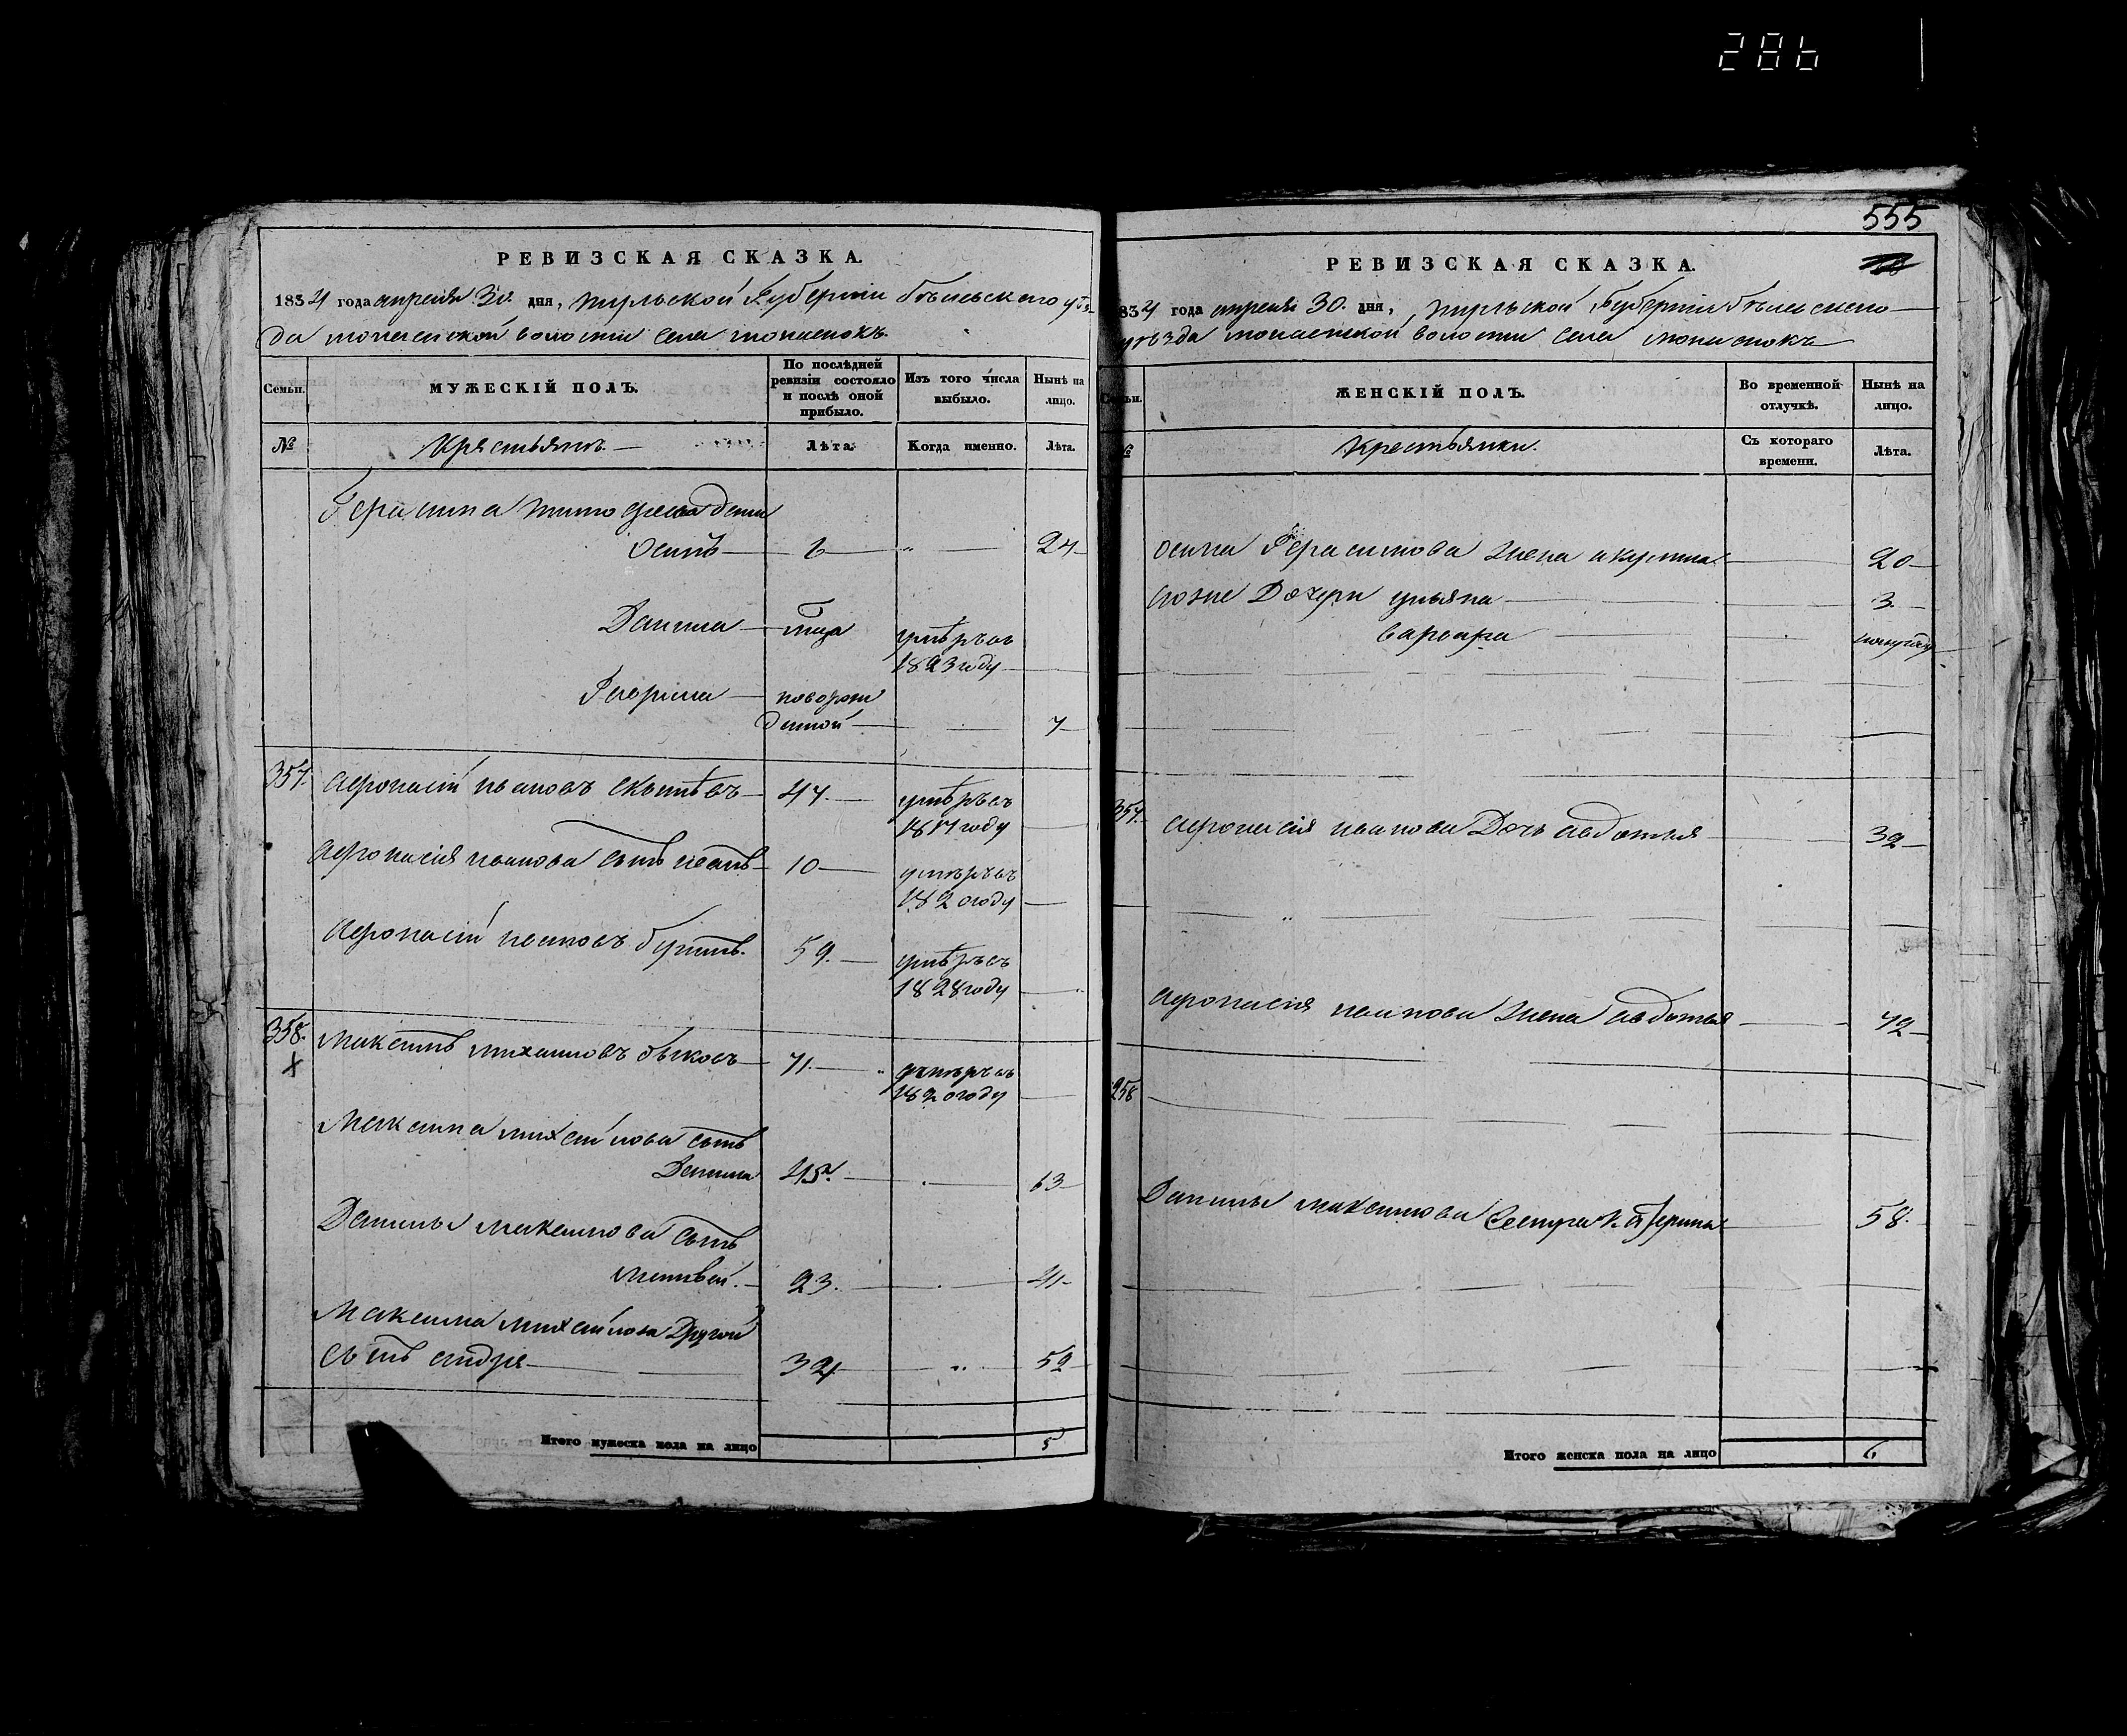 286
РЕВИЗСКАЯ СКАЗКА.
1834 года апреля 30. дня, тульской Губернии бѣлевскаго уѣз
да волости села
Семьи.
МУЖЕСКІЙ ПОЛЪ.
По послѣдней ревизіи состояло и послѣ оной прибыло.
Изъ того числа выбыло.
Нынѣ на лицо.
№
Крестьянъ.
Лѣта.
Когда именно.
Лѣта.
Герасима дети
Осипъ 6 24
Данила умѣръвъ
1823 году
Гаврила новорож
денной 7
357. Афонасій ивановъ 47. умѣръвъ
1817 году
Афонасія иванова сынъ 10 умѣръвъ
1820 году
Афонасій ивановъ 59. умѣръвъ
1828 году
358. Максимъ михаиловъ быковъ 71. умѣръвъ
Х 1820 году
Максима михайлова сынъ
Данила 45. 63
Данилы максимова сынъ
матвей. 23. 41
Максима михайлова Другой
сынъ андрей 34 52
Итого мужеска пола на лицо 5
555
РЕВИЗСКАЯ СКАЗКА.
1834 года апреля 30. дня, тульской Губернии бѣлевскаго
уѣзда волости села
Семьи.
ЖЕНСКІЙ ПОЛЪ.
Во временной отлучкѣ.
Нынѣ на лицо.
№
Крестьянки.
Съ котораго времени.
Лѣта.
осипа Герасимова жена акулина 20
Дочери ульяна 3.
варвара полугоду
357. афонасія иванова Дочь авдотья 32
афонасія иванова жена авдотья 72
258
Данилы максимова Сестра катерина 58.
Итого женска пола на лицо 6